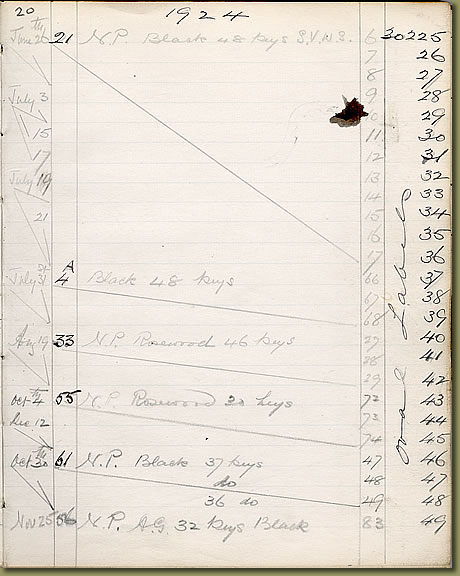 20 1924
June 26th 21 N.P. Black 48 keys S.V.W.S. 6 30225
7 26
8 27
July 3 9 28
29
15 11 30
17 12 31
July 19 13 32
14 33
21 15 34
16 35
17 36
July 31st A4 Black 48 keys 66 37
67 38
68 39
Aug 19 33 N.P. Rosewood 46 keys 27 40
28 41
29 42
Oct 4th 55 N.P. Rosewood 20 keys 72 43
Dec 12 73 44
74 45
Oct 30th 61 N.P. Black 37 keys 47 46
do 48 47
36 do 49 48
Nov 25 56 N.P. A.G. 32 keys Black 83 49
Oval Labels